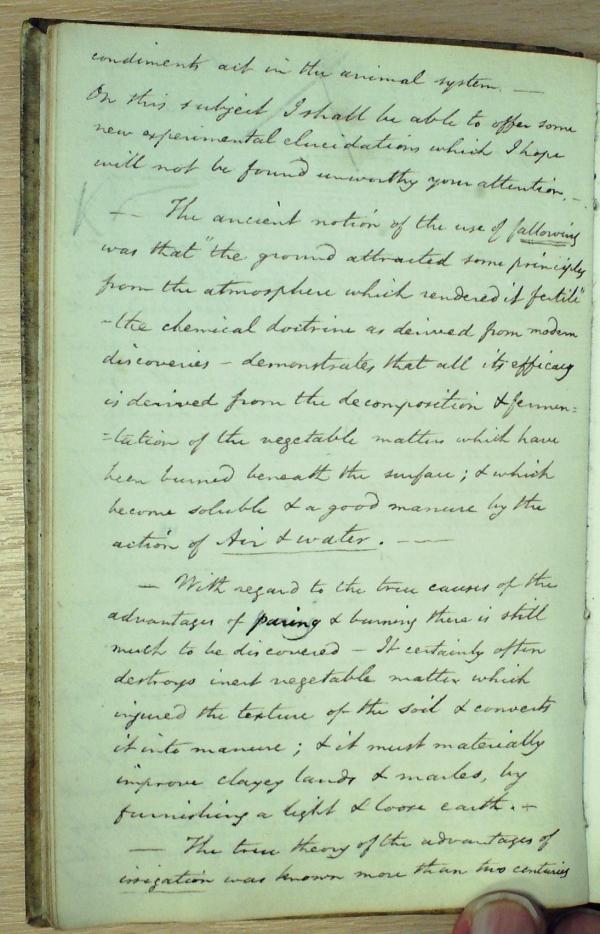 condiments act in the animal system. —
On this subject I shall be able to offer some
new experimental elucidations which I hope
will not be found unworthy your attention. –
— The ancient notion of the use of fallowing
was that "the ground attracted some principles
from the atmosphere which rendered it fertile"
– the chemical doctrine as derived from modern
discoveries – demonstrates that all its efficacy
is derived from the decomposition & fermen=
=tation of the vegetable matters which have
been burned beneath the surface; & which
become soluble & a good manure by the
action of Air & water. — —
— With regard to the true causes of the
advantages of paring & burning there is still
much to be discovered – It certainly often
destroys inert vegetable matter which
injured the texture of the soil & converts
it into manure; & it must materially
improve clayey lands & marles, by
furnishing a light & loose earth. –
— The true theory of the advantages of
irrigation was known more than two centuries